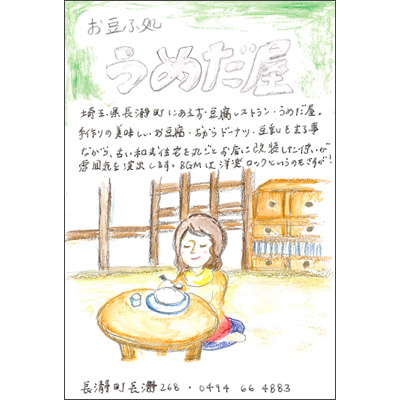 お豆ふ処
うめだ屋
埼玉県長瀞町にあるお豆腐レストラン・うめだ屋。
手作りの美味しいお豆腐・おからドーナツ・豆乳もまる事
ながら、古い和式住宅を丸ごとお店に改装した佇いが
雰囲気を演出します。BGMは洋楽ロックというのもすが!
長瀞町長瀞268・0494 66 4883